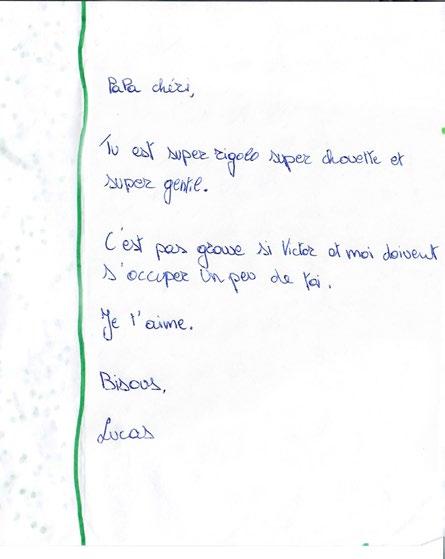 PaPa chéri,
Tu est super rigolo super chouette et
super gentil.
C'est pas grave si Victor et moi doivent
s'occuper un peu de toi.
Je t'aime.
Bisous,
Lucas